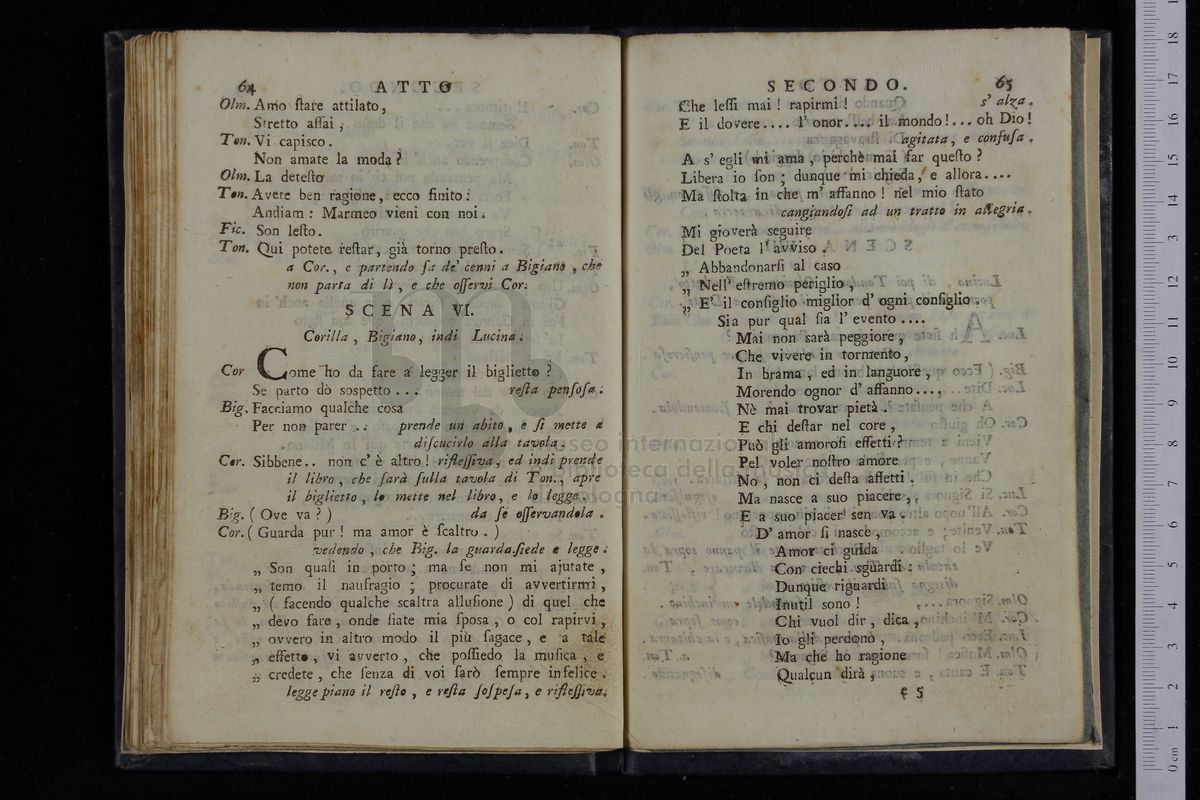 64 ATTO
Olm. Amo ſtare attilato,
Stretto aſſai,
Ton. Vi capisco.
Non amate la moda?
Olm. La deteſto
Ton. Avete ben ragione, ecco finito:
Andiam: Marmeo vieni con noi.
Fic. Son leſto.
Ton. Qui potete reſtar, già torno preſto.
a Cor., e partendo fa de' cenni a Bigiano, che
non parta di lì, e che oſſervi Cor:
SCENA VI.
Corilla, Bigiano, indi Lucina.
Cor Come ho da fare a legger il biglietto?
Se parto dò soſpetto ... reſta penſoſa.
Big. Facciamo qualche cosa
Per non parer .. prende un abito, e ſi mette a
diſcucirlo alla tavola.
Cor. Sibbene.. non c'è altro! rifleſſiva, ed indi prende
il libro, che ſarà ſulla tavola di Ton., apre
il biglietto, lo mette nel libro, e lo legge.
Big. (Ove va?) da ſe oſſervandola.
Cor. (Guarda pur! ma amor è ſcaltro.)
vedendo, che Big. la guarda.ſiede e legge:
„ Son quaſi in porto; ma ſe non mi ajutate,
„ temo il naufragio; procurate di avvertirmi,
„ (facendo qualche scaltra alluſione) di quel che
„ devo fare, onde ſiate mia ſpoſa, o col rapirvi,
„ ovvero in altro modo il più ſagace, e a tale
„ effetto, vi avverto, che poſſiedo la muſica, e
„ credete, che ſenza di voi ſarò ſempre infelice.
legge piano il reſto, e reſta ſoſpeſa, e rifleſſiva.
SECONDO. 65
Che leſſi mai! rapirmi! s' alza.
E il dovere.... l' onor.... il mondo!... oh Dio!
agitata, e confuſa.
A s' egli mi ama, perchè mai far queſto?
Libera io ſon; dunque mi chieda, e allora....
Ma ſtolta in che m' affanno! nel mio ſtato
cangiandoſi ad un tratto in allegria.
Mi gioverà seguire
Del Poeta l' avviso.
„ Abbandonarſi al caso
„ Nell' eſtremo periglio,
„ E' il conſiglio miglior d' ogni conſiglio.
Sia pur qual ſia l' evento ....
Mai non sarà peggiore,
Che vivere in tormento,
In brama, ed in languore,
Morendo ognor d' affanno....
Nè mai trovar pietà.
E chi deſtar nel core,
Può gli amoroſi effetti?
Pel voler noſtro amore
No, non ci deſta affetti.
Ma nasce a suo piacere,
E a suo piacer sen va.
D' amor ſi nasce,
Amor ci guida
Con ciechi sguardi:
Dunque riguardi
Inutil sono!
Chi vuol dir, dica,
Io gli perdono,
Ma che ho ragione
Qualcun dirà,
e 5
Museo internazionale
e biblioteca della musica
Bologna
0 cm 1 2 3 4 5 6 7 8 9 10 11 12 13 14 15 16 17 18